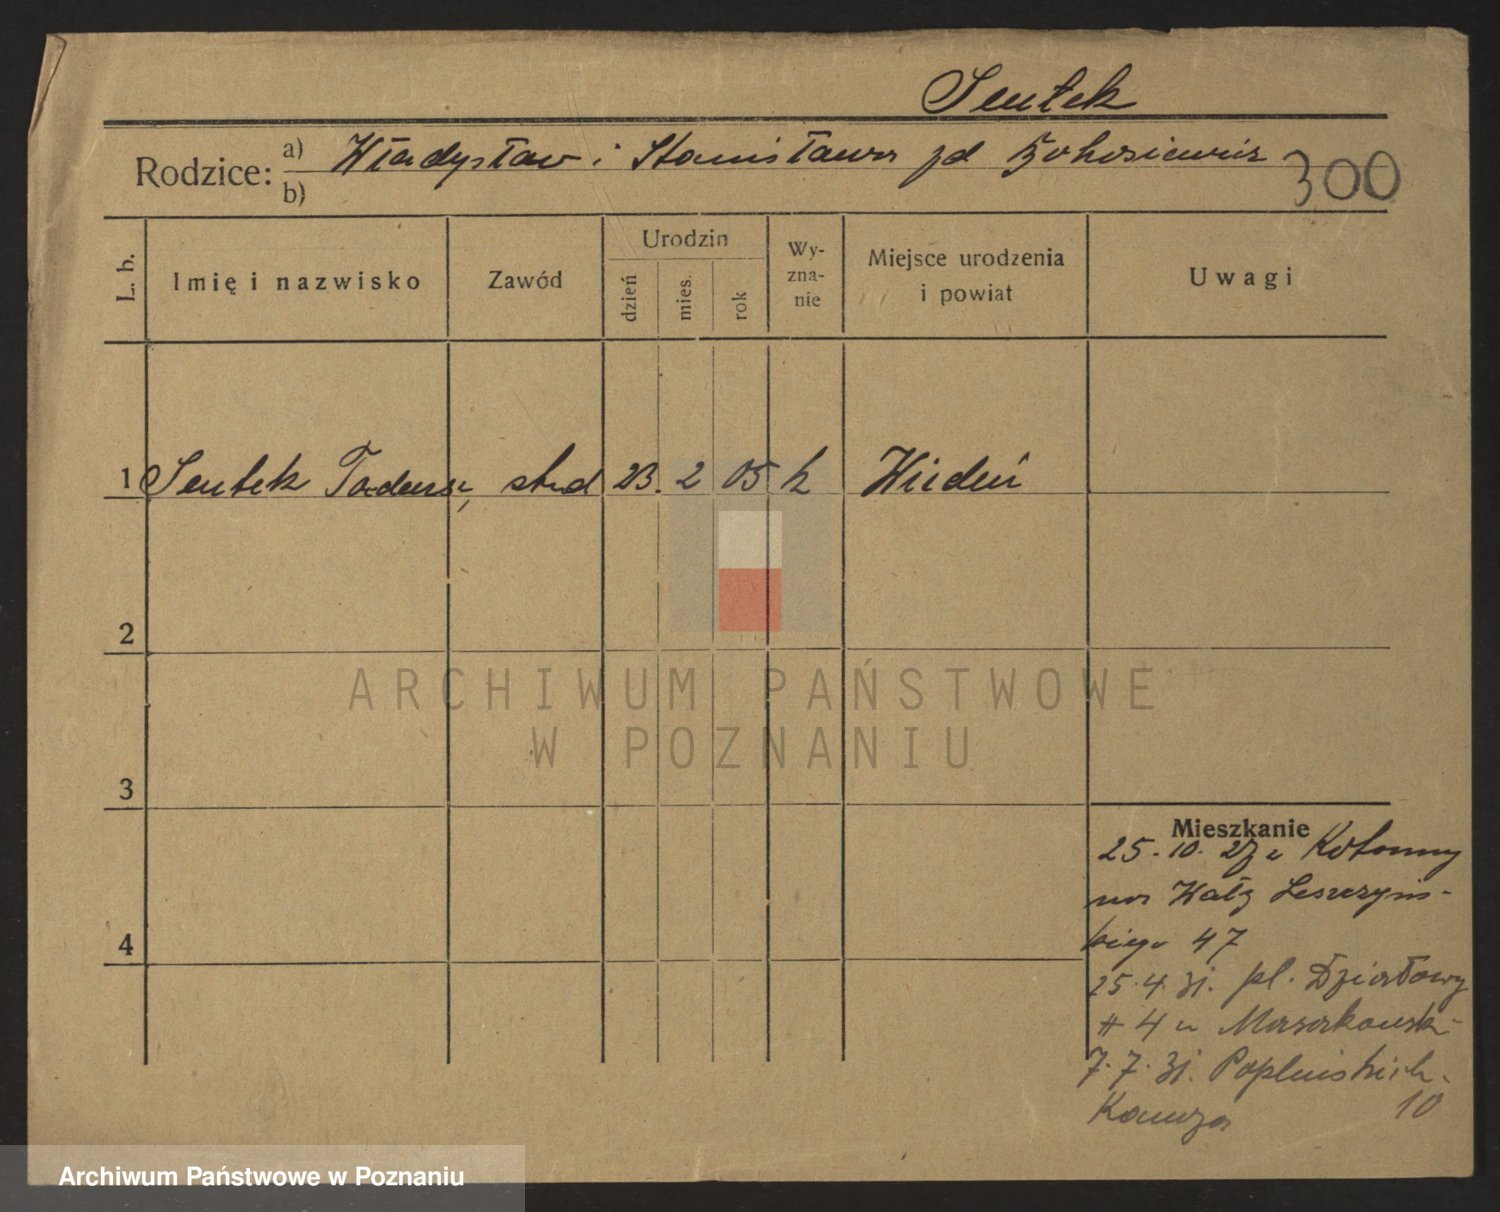 Sentek
Rodzice: a) Władysław i Stanisława zd Bohosiewicz
b)
300
L. b.
Imię i nazwisko
Zawód
Urodzin
dzień
mies.
rok
Wy-
zna-
nie
Miejsce urodzenia
i powiat
Uwagi
1 Sentek Tadeusz stud 23. 2 05 k Wiedeń
2
ARCHIWUM PAŃSTWOWE
W POZNANIU
3
4
Mieszkanie
25. 10. 27 u
Wały Leszczyń-
skiego 47
25. 4. 31. pl. Działowy
# 4 u
7. 7. 31. Poplińskich
10
Archiwum Państwowe w Poznaniu